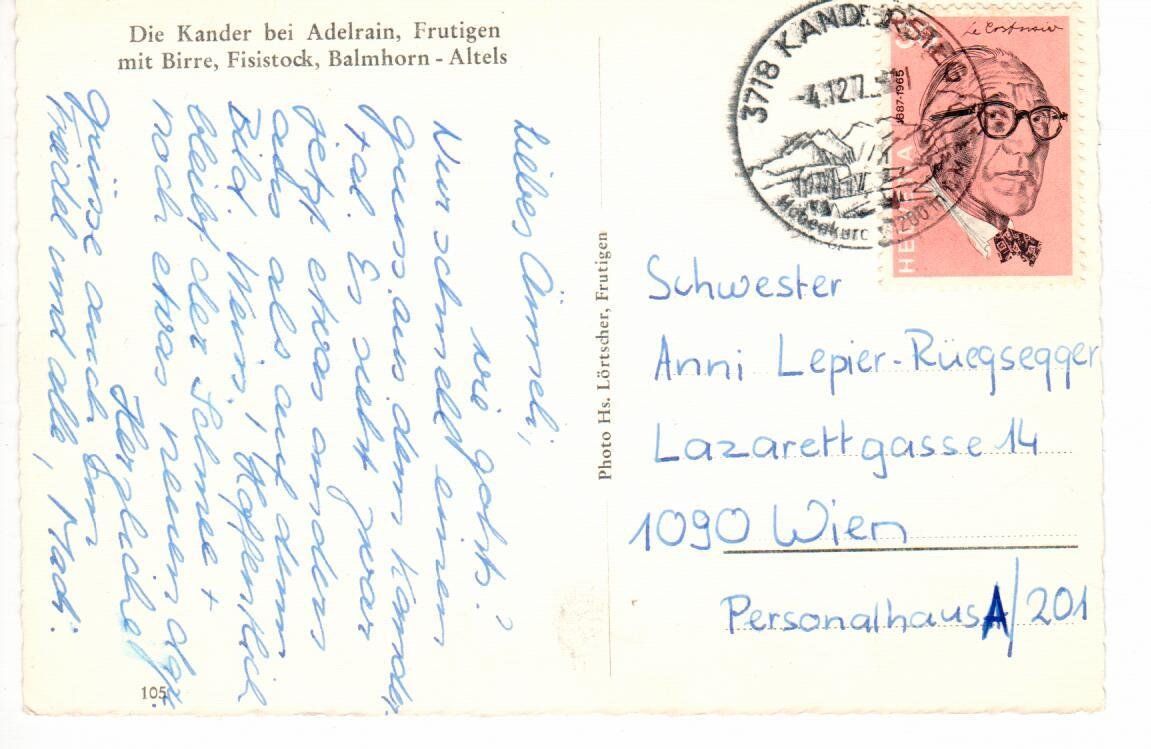 Die Kander bei Adelrain, Frutigen
mit Birre, Fisistock, Balmhorn - Altels
Liebes
wie gohts?
Nur schnell einen
Gruss aus dem Kander-
tal. Es sieht zwar
jetzt etwas anders
aus als auf dem
Bild. Hoffentlich
bleibt der Schnee +
noch etwas neuen
Herzliche
Grüsse auch
und alle,
105
Photo Hs. Lörtscher, Frutigen
3718 KANDERSTEG
-4.12.7
1200 m
Le Corbusier
1887-1965
HELVETIA
Schwester
Anni Lepier-Rüegsegger
Lazarettgasse 14
1090 Wien
Personalhaus A/201